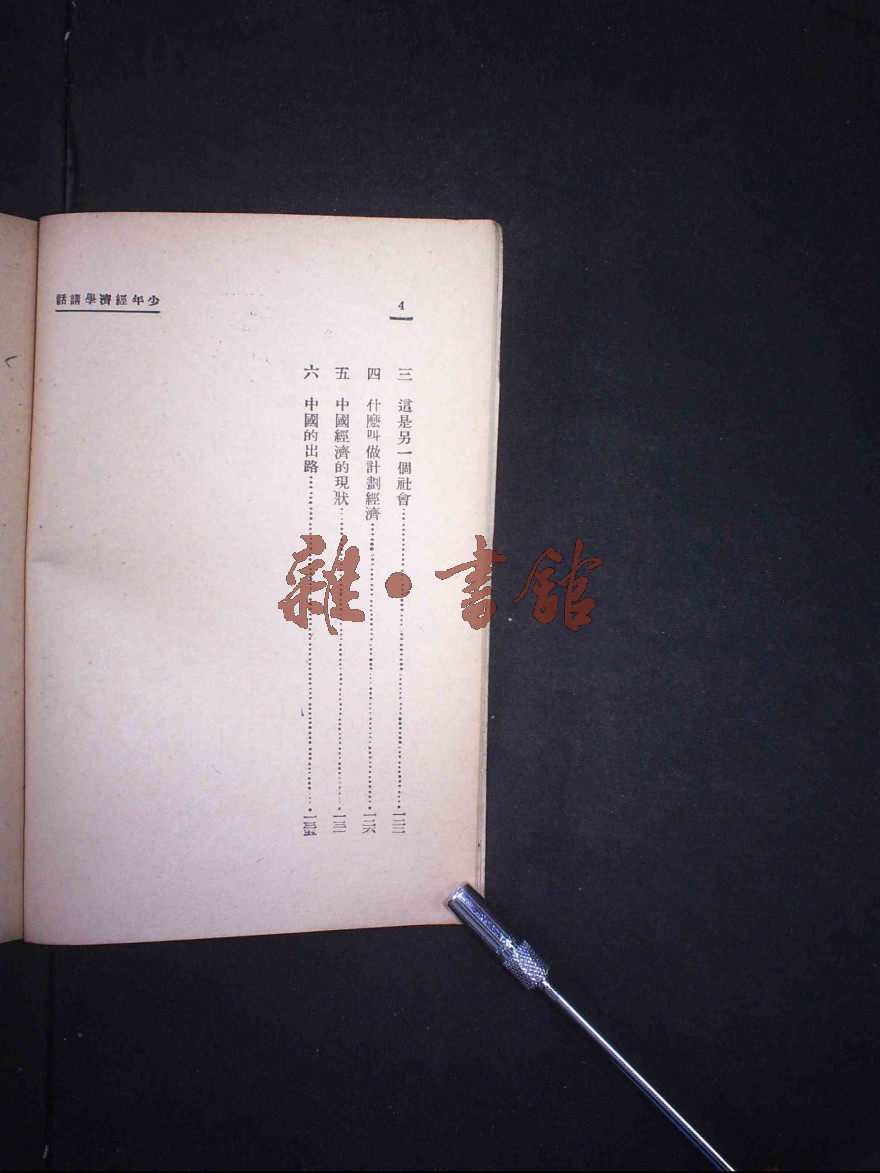 少年經濟學講話
4
三 這是另一個社會……一二二
四 什麽叫做計劃經濟……一二六
五 中國經濟的現狀……一三一
六 中國的出路……一三五
雜·書館